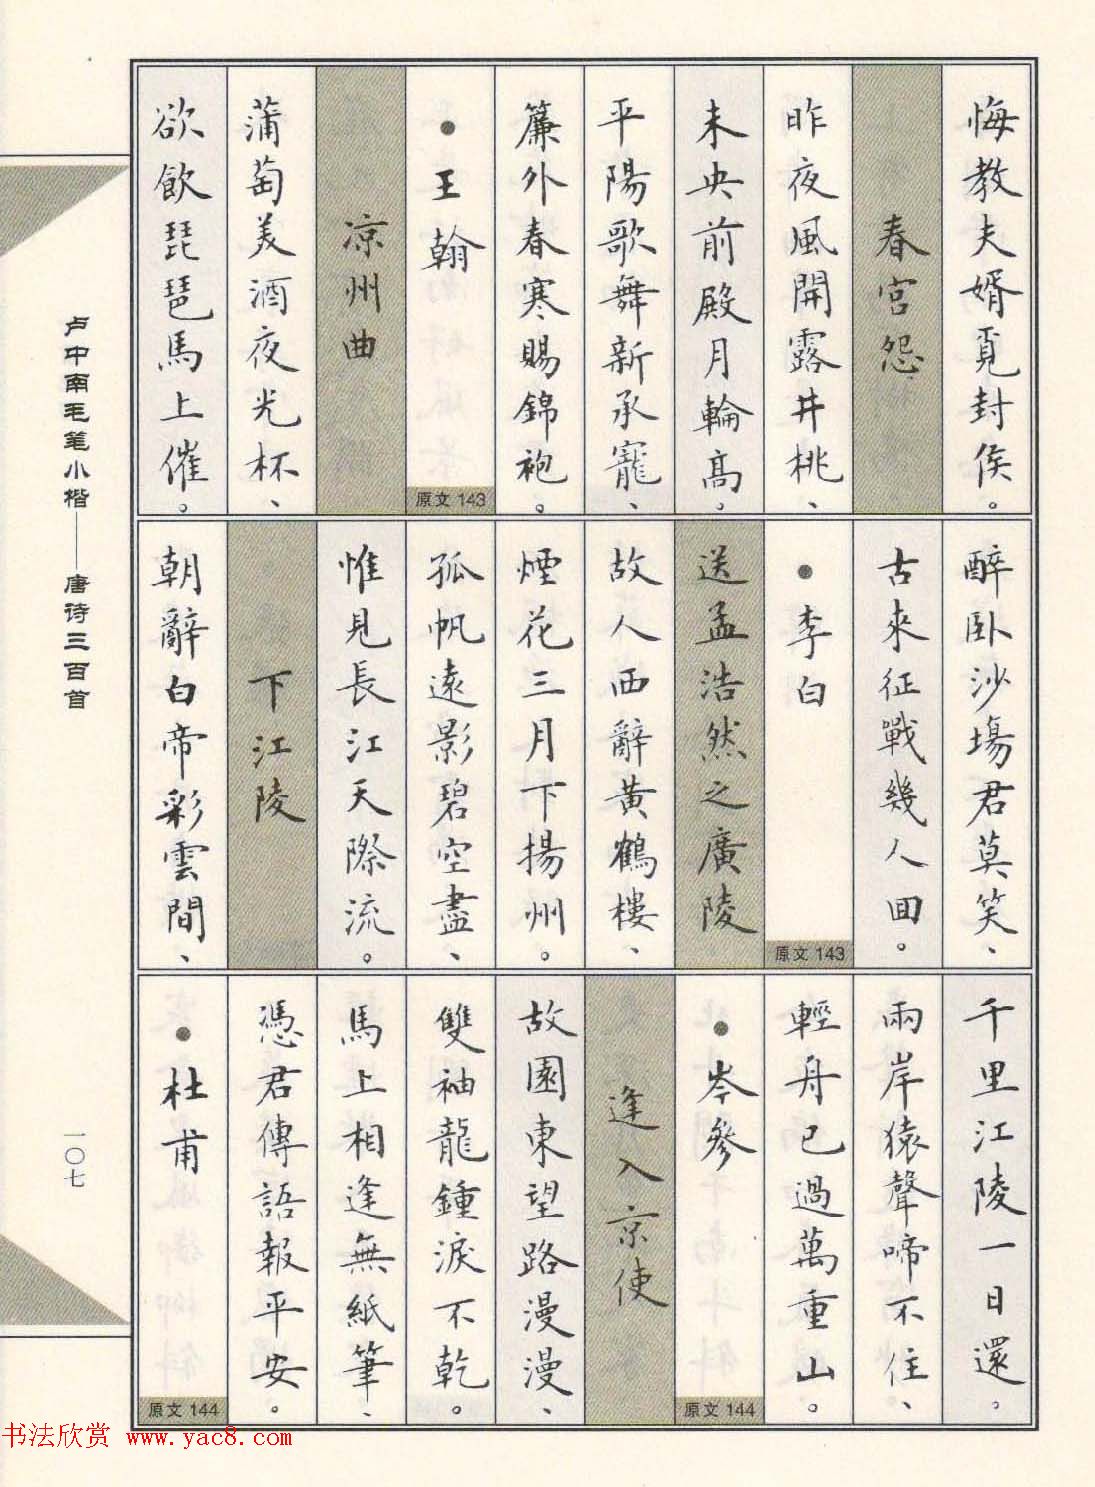 悔教夫婿覓封侯。
春宮怨
昨夜風開露井桃、
未央前殿月輪高。
平陽歌舞新承寵、
簾外春寒賜錦袍。
●王翰
原文 143
凉州曲
蒲萄美酒夜光杯、
欲飲琵琶馬上催。
醉卧沙場君莫笑、
古來征戰幾人回。
●李白
原文 143
送孟浩然之廣陵
故人西辭黃鶴樓、
煙花三月下揚州。
孤帆遠影碧空盡、
惟見長江天際流。
下江陵
朝辭白帝彩雲間、
千里江陵一日還。
兩岸猿聲啼不住、
輕舟已過萬重山。
●岑參
原文 144
逢入京使
故園東望路漫漫、
雙袖龍鍾淚不乾。
馬上相逢無紙筆、
憑君傳語報平安。
●杜甫
原文 144
卢中南毛笔小楷——唐诗三百首
一〇七
书法欣赏 www.yac8.com